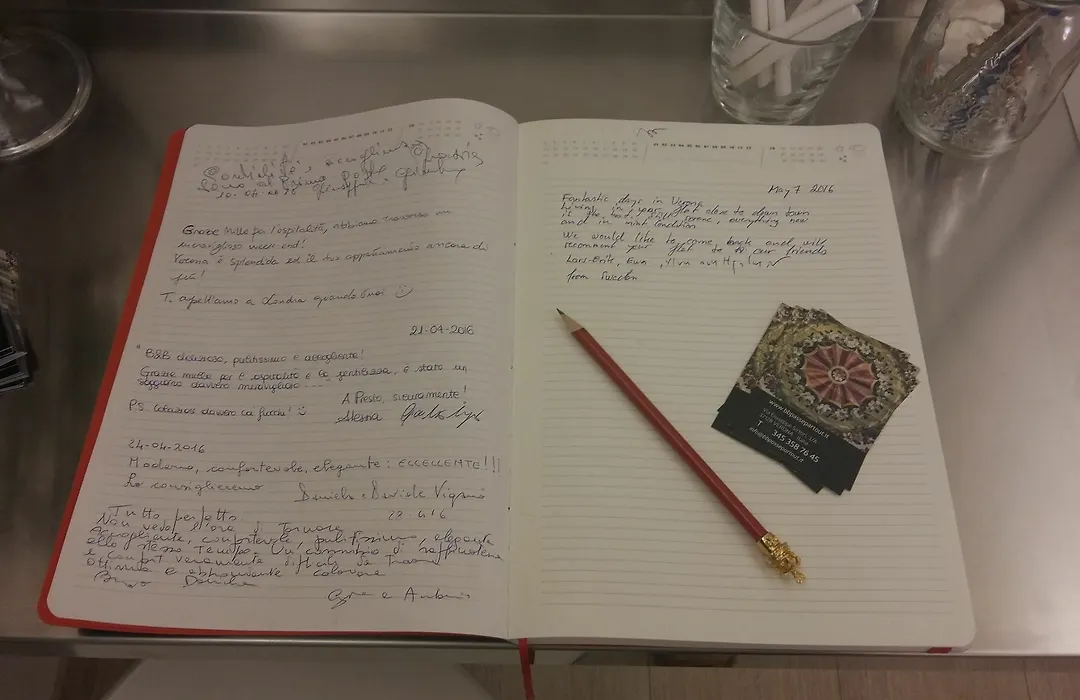 Gentilità, accoglienza
10-04-2016 Giuseppe e
Grazie mille per l'ospitalità, abbiamo trascorso un
meraviglioso week-end!
Verona è splendida ed il tuo appartamento ancora di
più!
Ti aspettiamo a Londra quando vuoi
21-04-2016
"B&B delizioso, pulitissimo e accogliente!
Grazie mille per l'ospitalità e la gentilezza, è stato un
soggiorno davvero meraviglioso
A Presto, sicuramente!
P.S. Colazione davvero coi fiocchi!
24-04-2016
Moderno, confortevole, elegante: ECCELLENTE!!!
Lo consiglieremo Daniela e Davide
28-4-16
Tutto perfetto
Non vedo l'ora di tornare
Accogliente, confortevole, pulitissimo, elegante
allo stesso tempo. Un connubio di raffinatezza
e comfort veramente difficile da trovare
Ottima e abbondante colazione
Bravo
e Antonio
May 7 2016
Fantastic days in Verona
Living in your flat close to down town
is the best, everything new
and in mint condition
We would like to come back and will
recomment your flat to all our friends
Lars-Erik, Ewa,
from Sweden
www.bbpassepartout.it
37129 VERONA - Italia
T 345 358 76 45
info@bbpassepartout.it